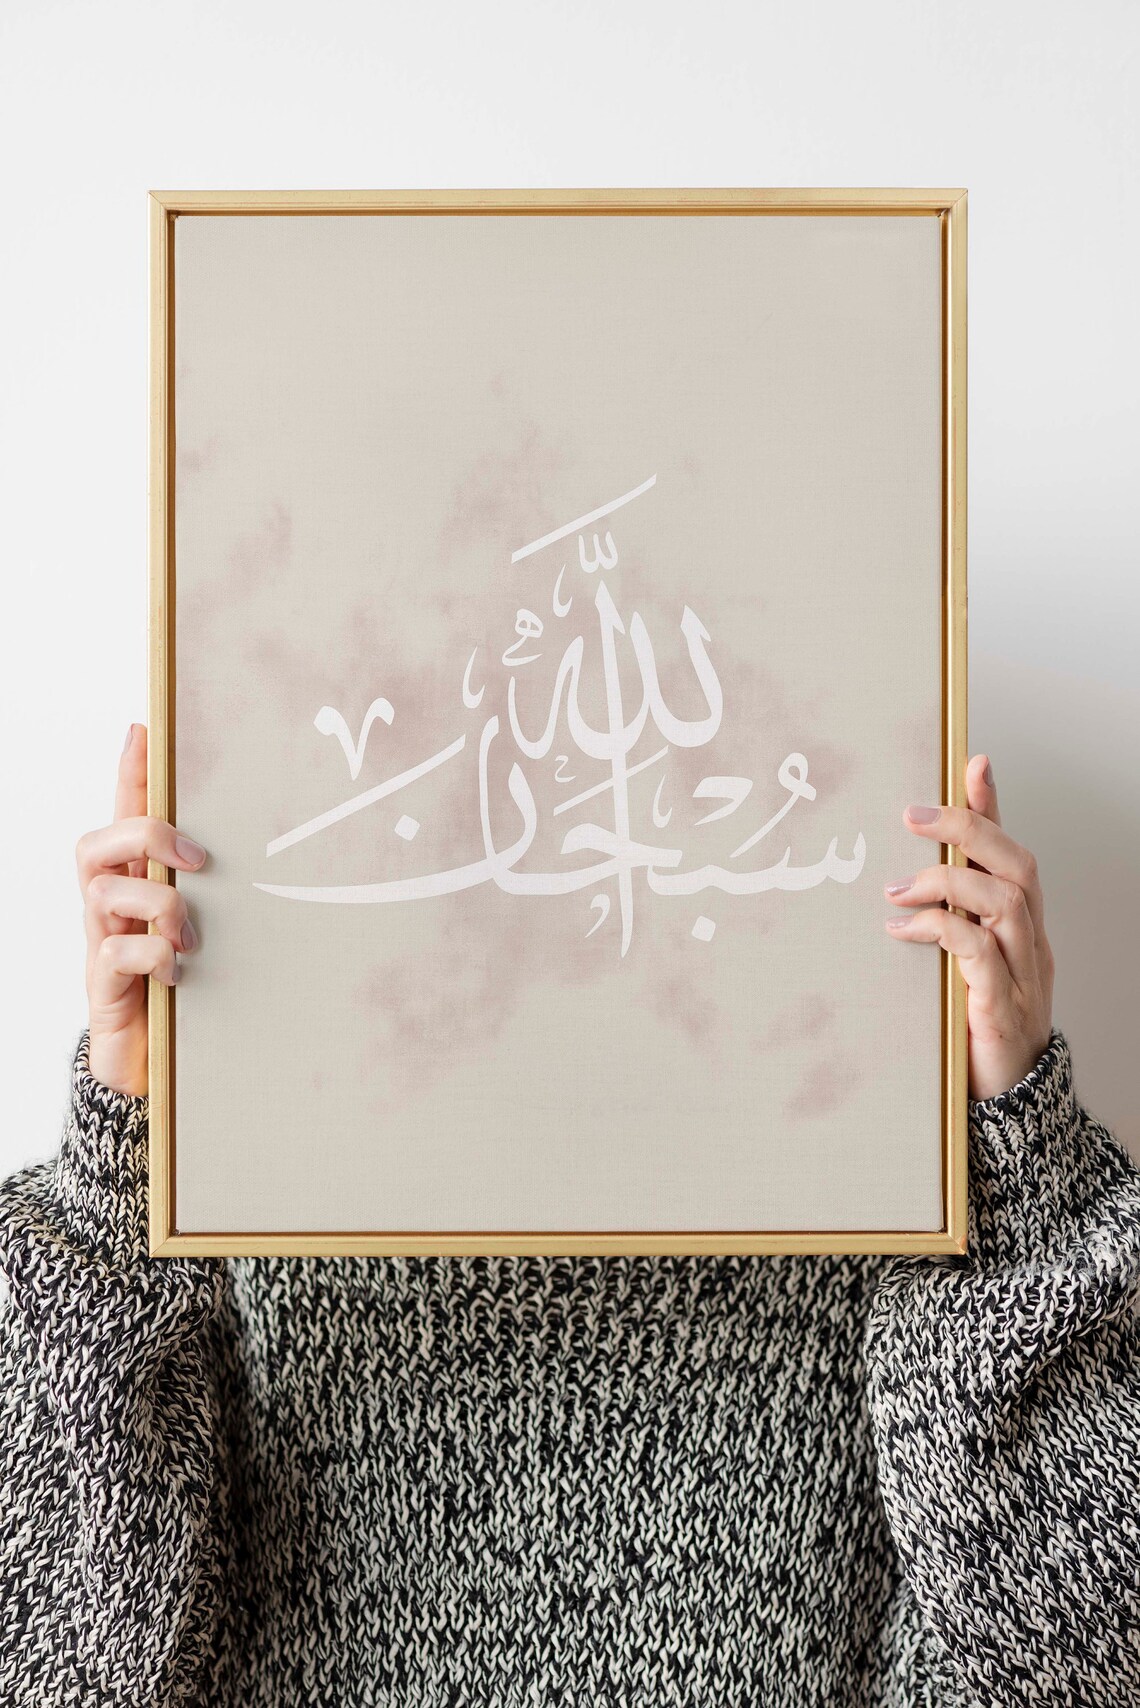 سُبْحَانَ اللَّهِ